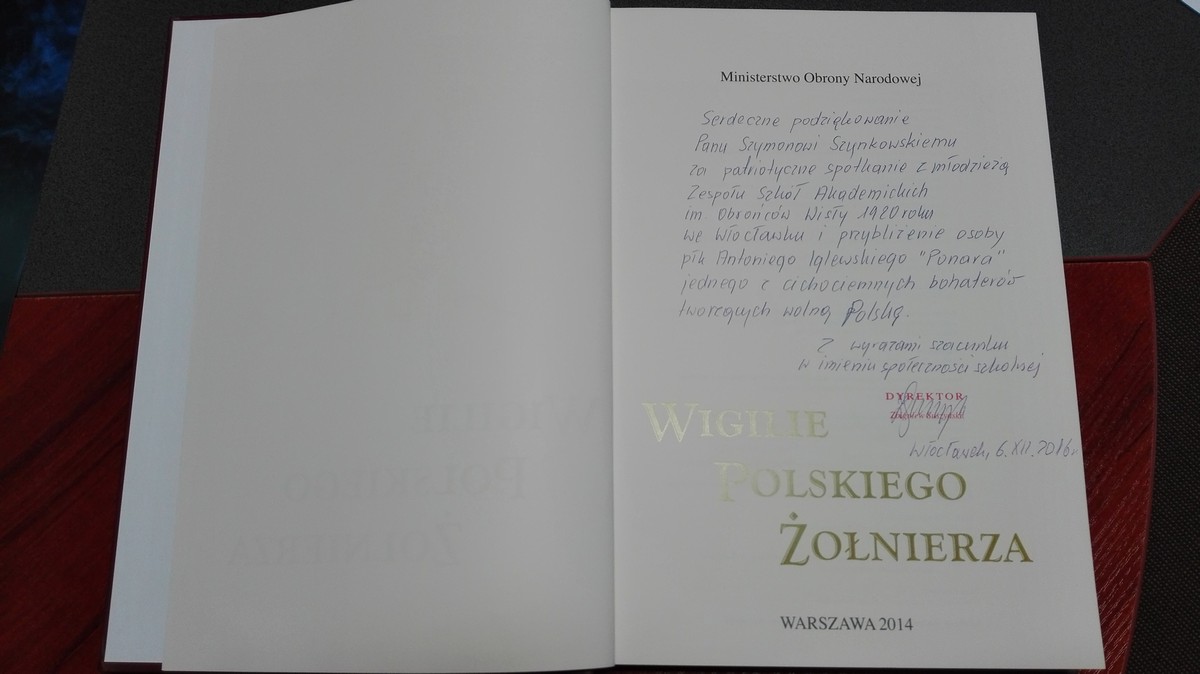 Ministerstwo Obrony Narodowej
Serdeczne podziękowanie
Panu Szymonowi Szynkowskiemu
za patriotyczne spotkanie z młodzieżą
Zespołu Szkół Akademickich
im Obrońców Wisły 1920 roku
we Włocławku i przybliżenie osoby
płk Antoniego Iglewskiego "Ponara"
jednego z cichociemnych bohaterów
tworzących wolną Polskę.
Z wyrazami szacunku
w imieniu społeczności szkolnej
DYREKTOR
Włocławek, 6.XII.2016r
WIGILIE
POLSKIEGO
ŻOŁNIERZA
WARSZAWA 2014